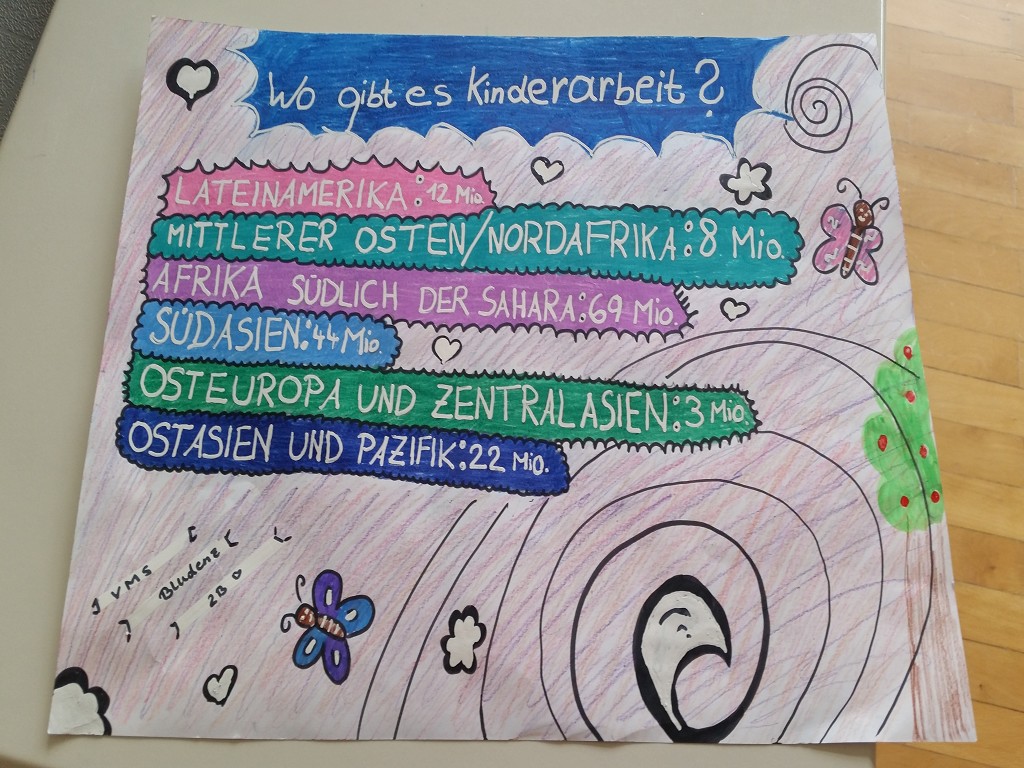 Wo gibt es Kinderarbeit?
LATEINAMERIKA: 12 Mio.
MITTLERER OSTEN/NORDAFRIKA: 8 Mio.
AFRIKA SÜDLICH DER SAHARA: 69 Mio.
SÜDASIEN: 44 Mio.
OSTEUROPA UND ZENTRALASIEN: 3 Mio.
OSTASIEN UND PAZIFIK: 22 Mio.
VMS
Bludenz
2B